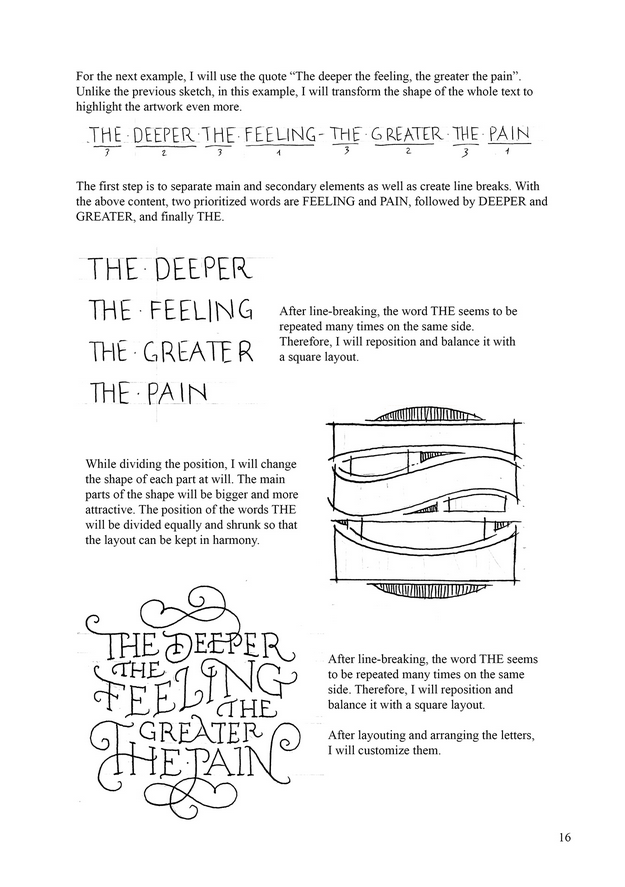 For the next example, I will use the quote “The deeper the feeling, the greater the pain”.
Unlike the previous sketch, in this example, I will transform the shape of the whole text to
highlight the artwork even more.
THE · DEEPER · THE · FEELING - THE · GREATER · THE · PAIN
3 2 3 1 3 2 3 1
The first step is to separate main and secondary elements as well as create line breaks. With
the above content, two prioritized words are FEELING and PAIN, followed by DEEPER and
GREATER, and finally THE.
THE · DEEPER
THE · FEELING
THE · GREATER
THE · PAIN
After line-breaking, the word THE seems to be
repeated many times on the same side.
Therefore, I will reposition and balance it with
a square layout.
While dividing the position, I will change
the shape of each part at will. The main
parts of the shape will be bigger and more
attractive. The position of the words THE
will be divided equally and shrunk so that
the layout can be kept in harmony.
THE DEEPER
THE
FEELING
THE
GREATER
THE · PAIN
After line-breaking, the word THE seems
to be repeated many times on the same
side. Therefore, I will reposition and
balance it with a square layout.
After layouting and arranging the letters,
I will customize them.
16